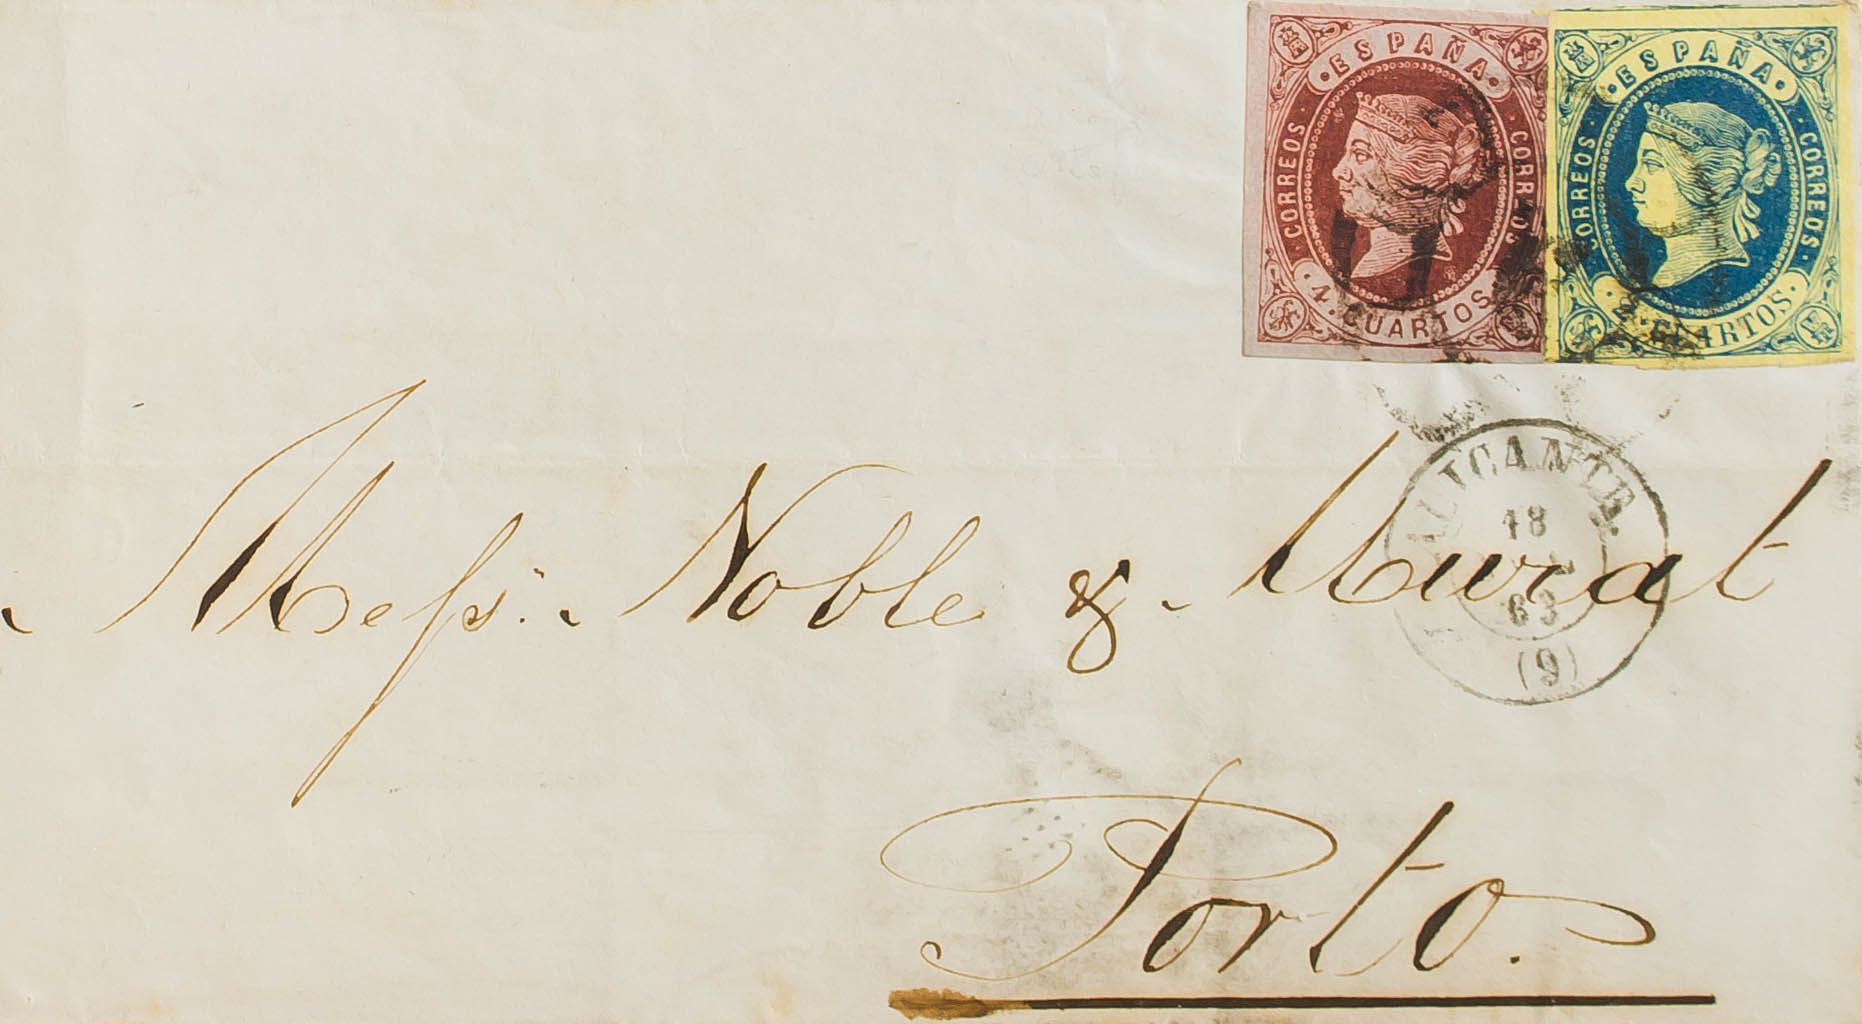 ESPAÑA
CORREOS CORREOS
4 CUARTOS
ESPAÑA
CORREOS CORREOS
CUARTOS
ALICANTE.
18
63
(9)
Mesſs. Noble & Murat
Porto.